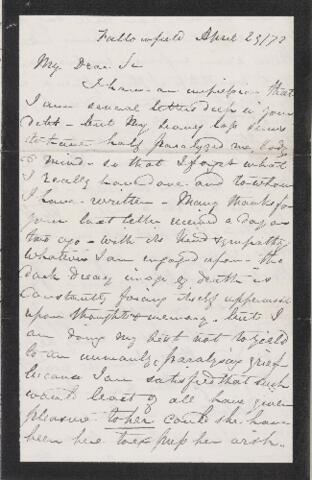 Fallowfield April 29/72
My Dear Sir
I have an impression that
I am several letters deep in your
debt - but my heavy loss seems
to have half paralyzed me, body
& mind - so that I forget what
I really have done and to whom
I have written - Many thanks for
your last letter received a day or
two ago - with its kind sympathy
Whatever I am engaged upon - the
dark dreary image of death is
constantly forcing itself uppermost
upon thought & memory, but I
am doing my best not to yield
to an unmanly & paralysing grief
because I am satisfied that such
would least of all have given
pleasure to her could she have
been here to express her wish.